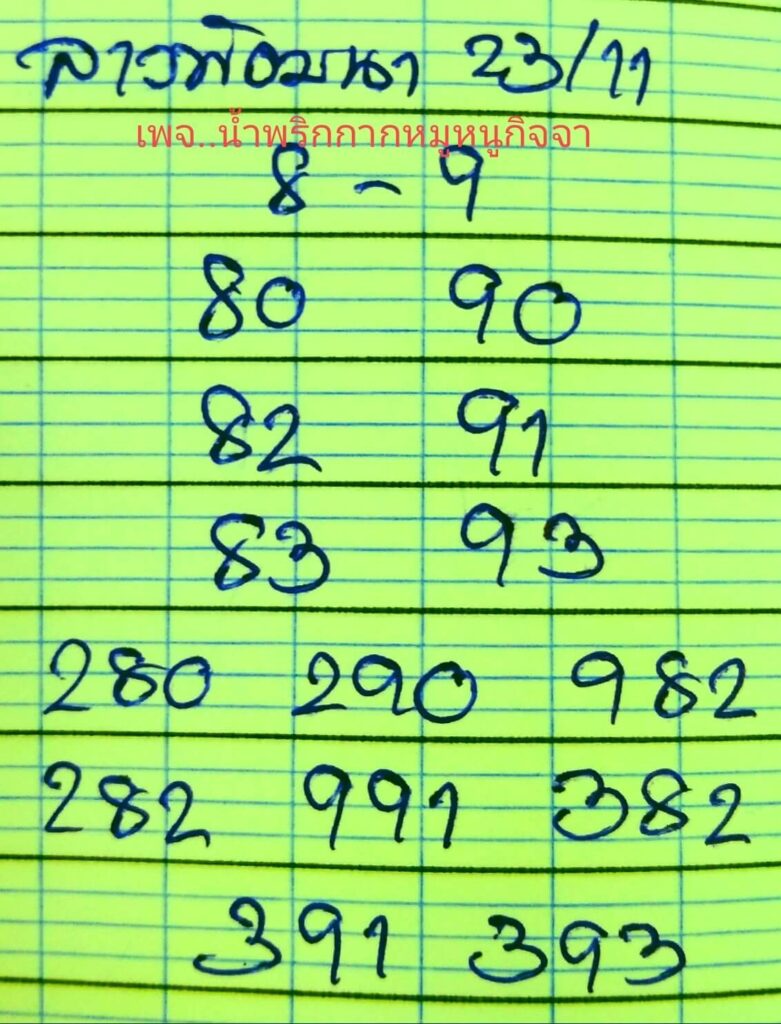 ลาวพัฒนา 23/11
เพจ..น้ำพริกกากหมูหนูกิจจา
8 - 9
80 90
82 91
83 93
280 290 982
282 991 382
391 393